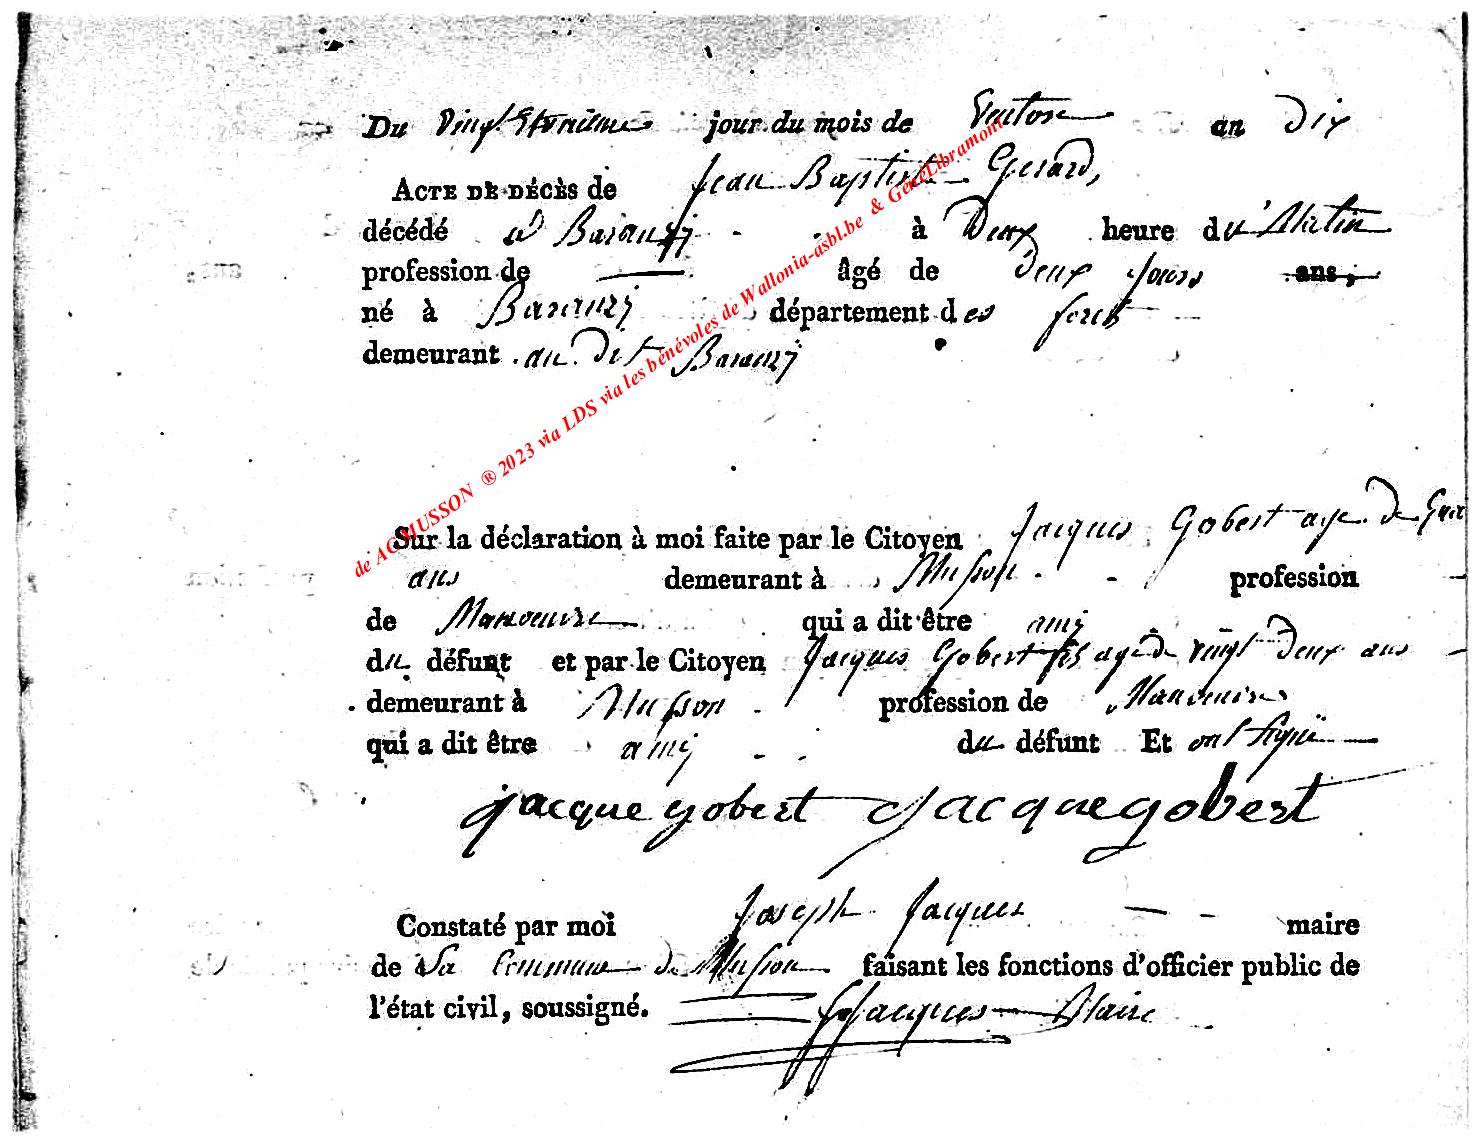 Du Vingt Etroisieme jour du mois de Ventose an Dix
ACTE DE DÉCÈS de Jean Baptiste Gerard,
décédé a Baranzj à Deux heure du Matin
profession de — âgé de Deux Jours ans,
né à Baranzj département des forets
demeurant au Dit Baranzj
Sur la déclaration à moi faite par le Citoyen Jacques Gobert age de
ans demeurant à Musson profession
de Manoeuvre qui a dit être amj
du défunt et par le Citoyen Jacques Gobert fils agé de vingt Deux ans
demeurant à Musson profession de Manoeuvre
qui a dit être amj du défunt Et ont signé
jacque gobert jacque gobert
Constaté par moi Joseph Jacques maire
de La Commune de Musson faisant les fonctions d'officier public de
l'état civil, soussigné. Jacques Maire
de AGMUSSON ® 2023 via LDS via les bénévoles de Wallonia-asbl.be & GénéLibramont